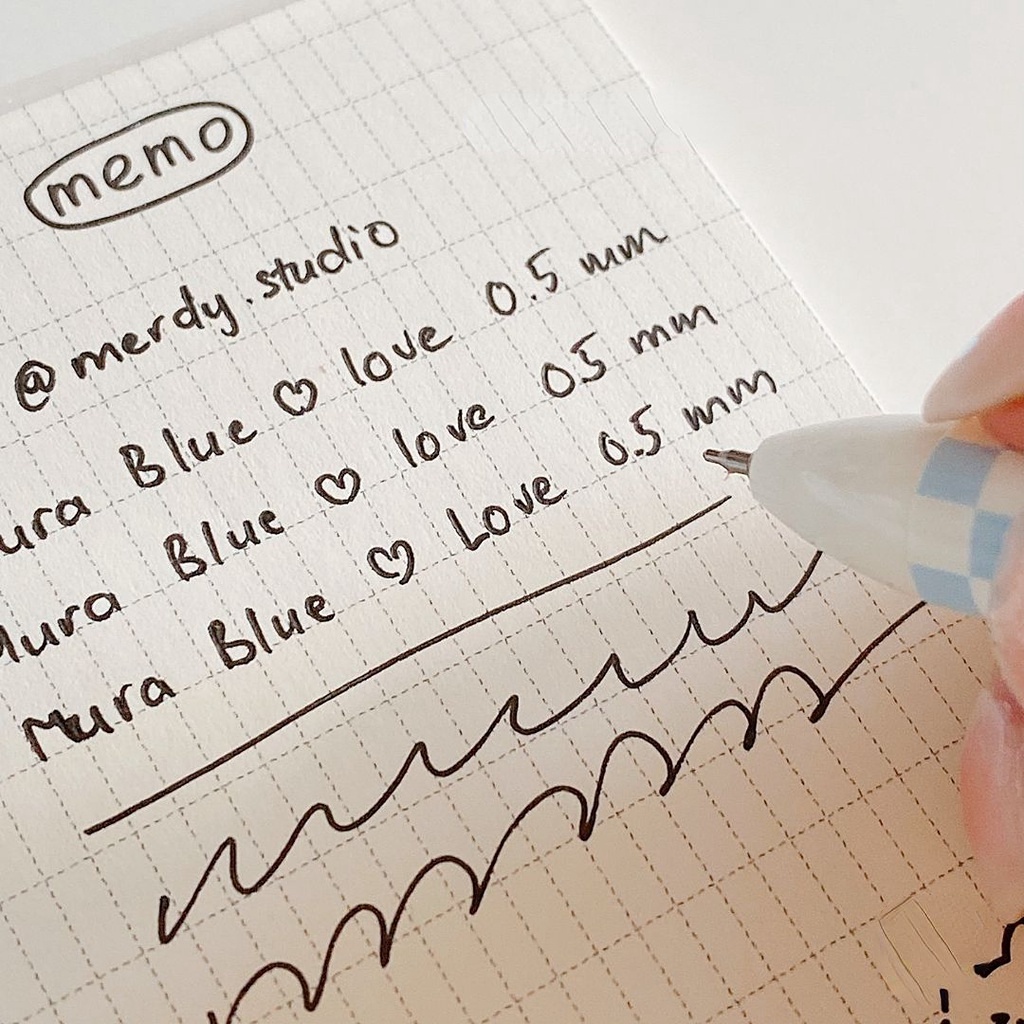 memo
@merdy.studio
ura Blue ♡ love 0.5 mm
Mura Blue ♡ love 0.5 mm
Mura Blue ♡ Love 0.5 mm